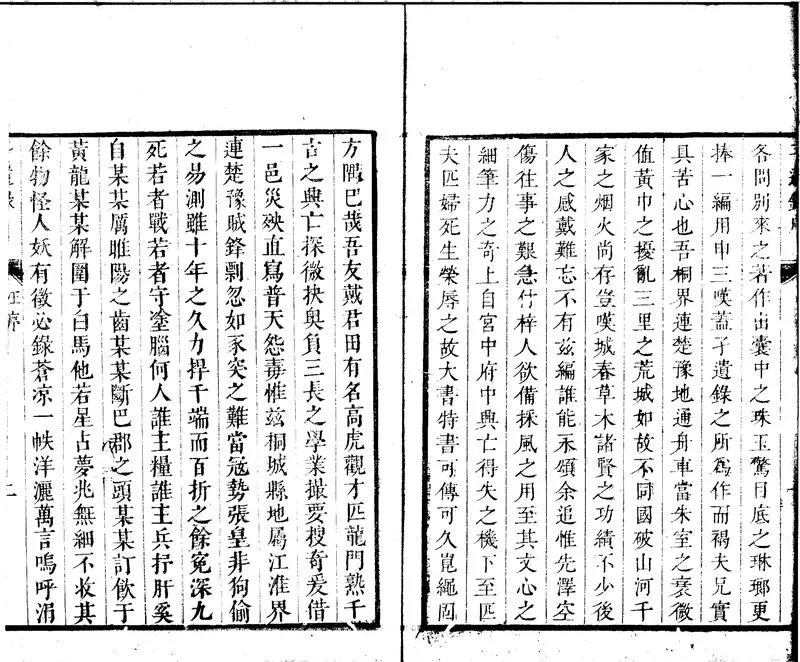 各問別來之著作出囊中之珠玉驚目底之琳瑯更
捧一編用申三嘆蓋孑遺錄之所爲作而褐夫兄實
具苦心也吾桐界連楚豫地通舟車當朱室之衰微
值黃巾之擾亂三里之荒城如故不同國破山河千
家之烟火尚存豈嘆城春草木諸賢之功績不少後
人之感戴難忘不有兹編誰能承頌余追惟先澤空
傷往事之艱急付梓人欲備採風之用至其文心之
細筆力之奇上自宮中府中興亡得失之機下至匹
夫匹婦死生榮辱之故大書特書可傳可久崑繩囧
方隅巳哉吾友戴君田有名高虎觀才匹龍門熟千
古之興亡探微抉奧負三長之學業撮要搜奇爰借
一邑災殃直寫普天怨毒惟兹桐城縣地屬江淮界
連楚豫賊鋒剽忽如豕突之難當寇勢張皇非狗偷
之易測雖十年之久力捍千端而百折之餘寃深九
死若者戰若者守塗腦何人誰主糧誰主兵抒肝奚
自某某厲睢陽之齒某某斷巴郡之頭某某訂飲于
黃龍某某解圍于白馬他若星占夢兆無細不收其
餘物怪人妖有徵必錄蒼凉一帙洋灑萬言嗚呼涓
汪序
二